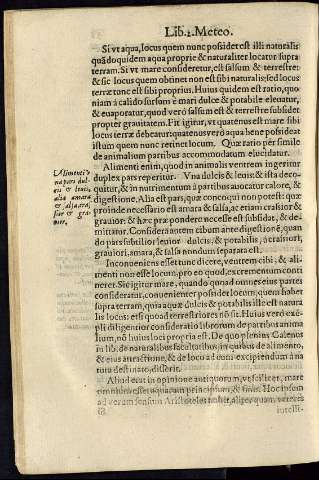 Lib. 2. Meteo.
Si vt aqua, locus quem nunc possidet est illi naturalis
quādo quidem aqua proprie & naturaliter locatur supra
terram. Si vt mare consideretur, est salsum & terrestre:
& sic locus quem obtinet non est sibi naturalis: sed locus
terræ tunc est sibi proprius. Huius quidem est ratio, quo
niam à calido sursum è mari dulce & potabile eleuatur,
& euaporatur, quod verò salsum est & terrestre subsidet
propter grauitatem. Fit igitur, vt quatenus est mare sibi
locus terræ debeatur: quatenus verò aqua bene possideat
istum quem nunc retinet locum. Quæ ratio per simile
de animalium partibus accommodatum elucidatur.
Alimenti enim, quod in animalis ventrem ingeritur
duplex pars reperitur. Vna dulcis & leuis: & ista deco-
quitur, & in nutrimentum à partibus auocatur calore, &
digestione. Alia est pars, quæ concoqui non potest: quæ
proinde necessario est amara & salsa, ac etiam crassior &
grauior: & hæc præ pondere necesse est subsidat, & de-
mittatur. Considera autem cibum ante digestionē, quan
do pars subtilior, leuior dulcis, & potabilis, à crassiori,
grauiori, amara, & falsa nondum separata est.
Alimenti v
na pars dul-
cis & leuis,
alia amara,
& salsa, cras
sior & gra-
uior.
Inconueniens esset tunc dicere, ventrem cibi, & ali-
menti non esse locum, pro eo quod, excrementum conti
neret. Sic igitur mare, quando quoad omnes eius partes
consideratur, conuenienter possidet locum, quem habet
supra terram, quia aquæ dulcis & potabilis ille est natura
lis locus: etsi quoad terrestriores nō sit. Huius verò exē-
pli diligentior consideratio librorum de partibus anima
lium, nō huius loci propria est. De quo plenius Galenus
in lib. de naturalibus facultatibus, in quibus de alimento,
& eius attractione, & de loco ad omni excipiendum à na
tura destinato, disserit.
Aliud erat in opinione antiquorum, vt scilicet, mare
omnium esset aquarum principium, & finis. Hoc insuper
ad verum sensum Aristoteles trahit, aliter quam, veteres
intelli-